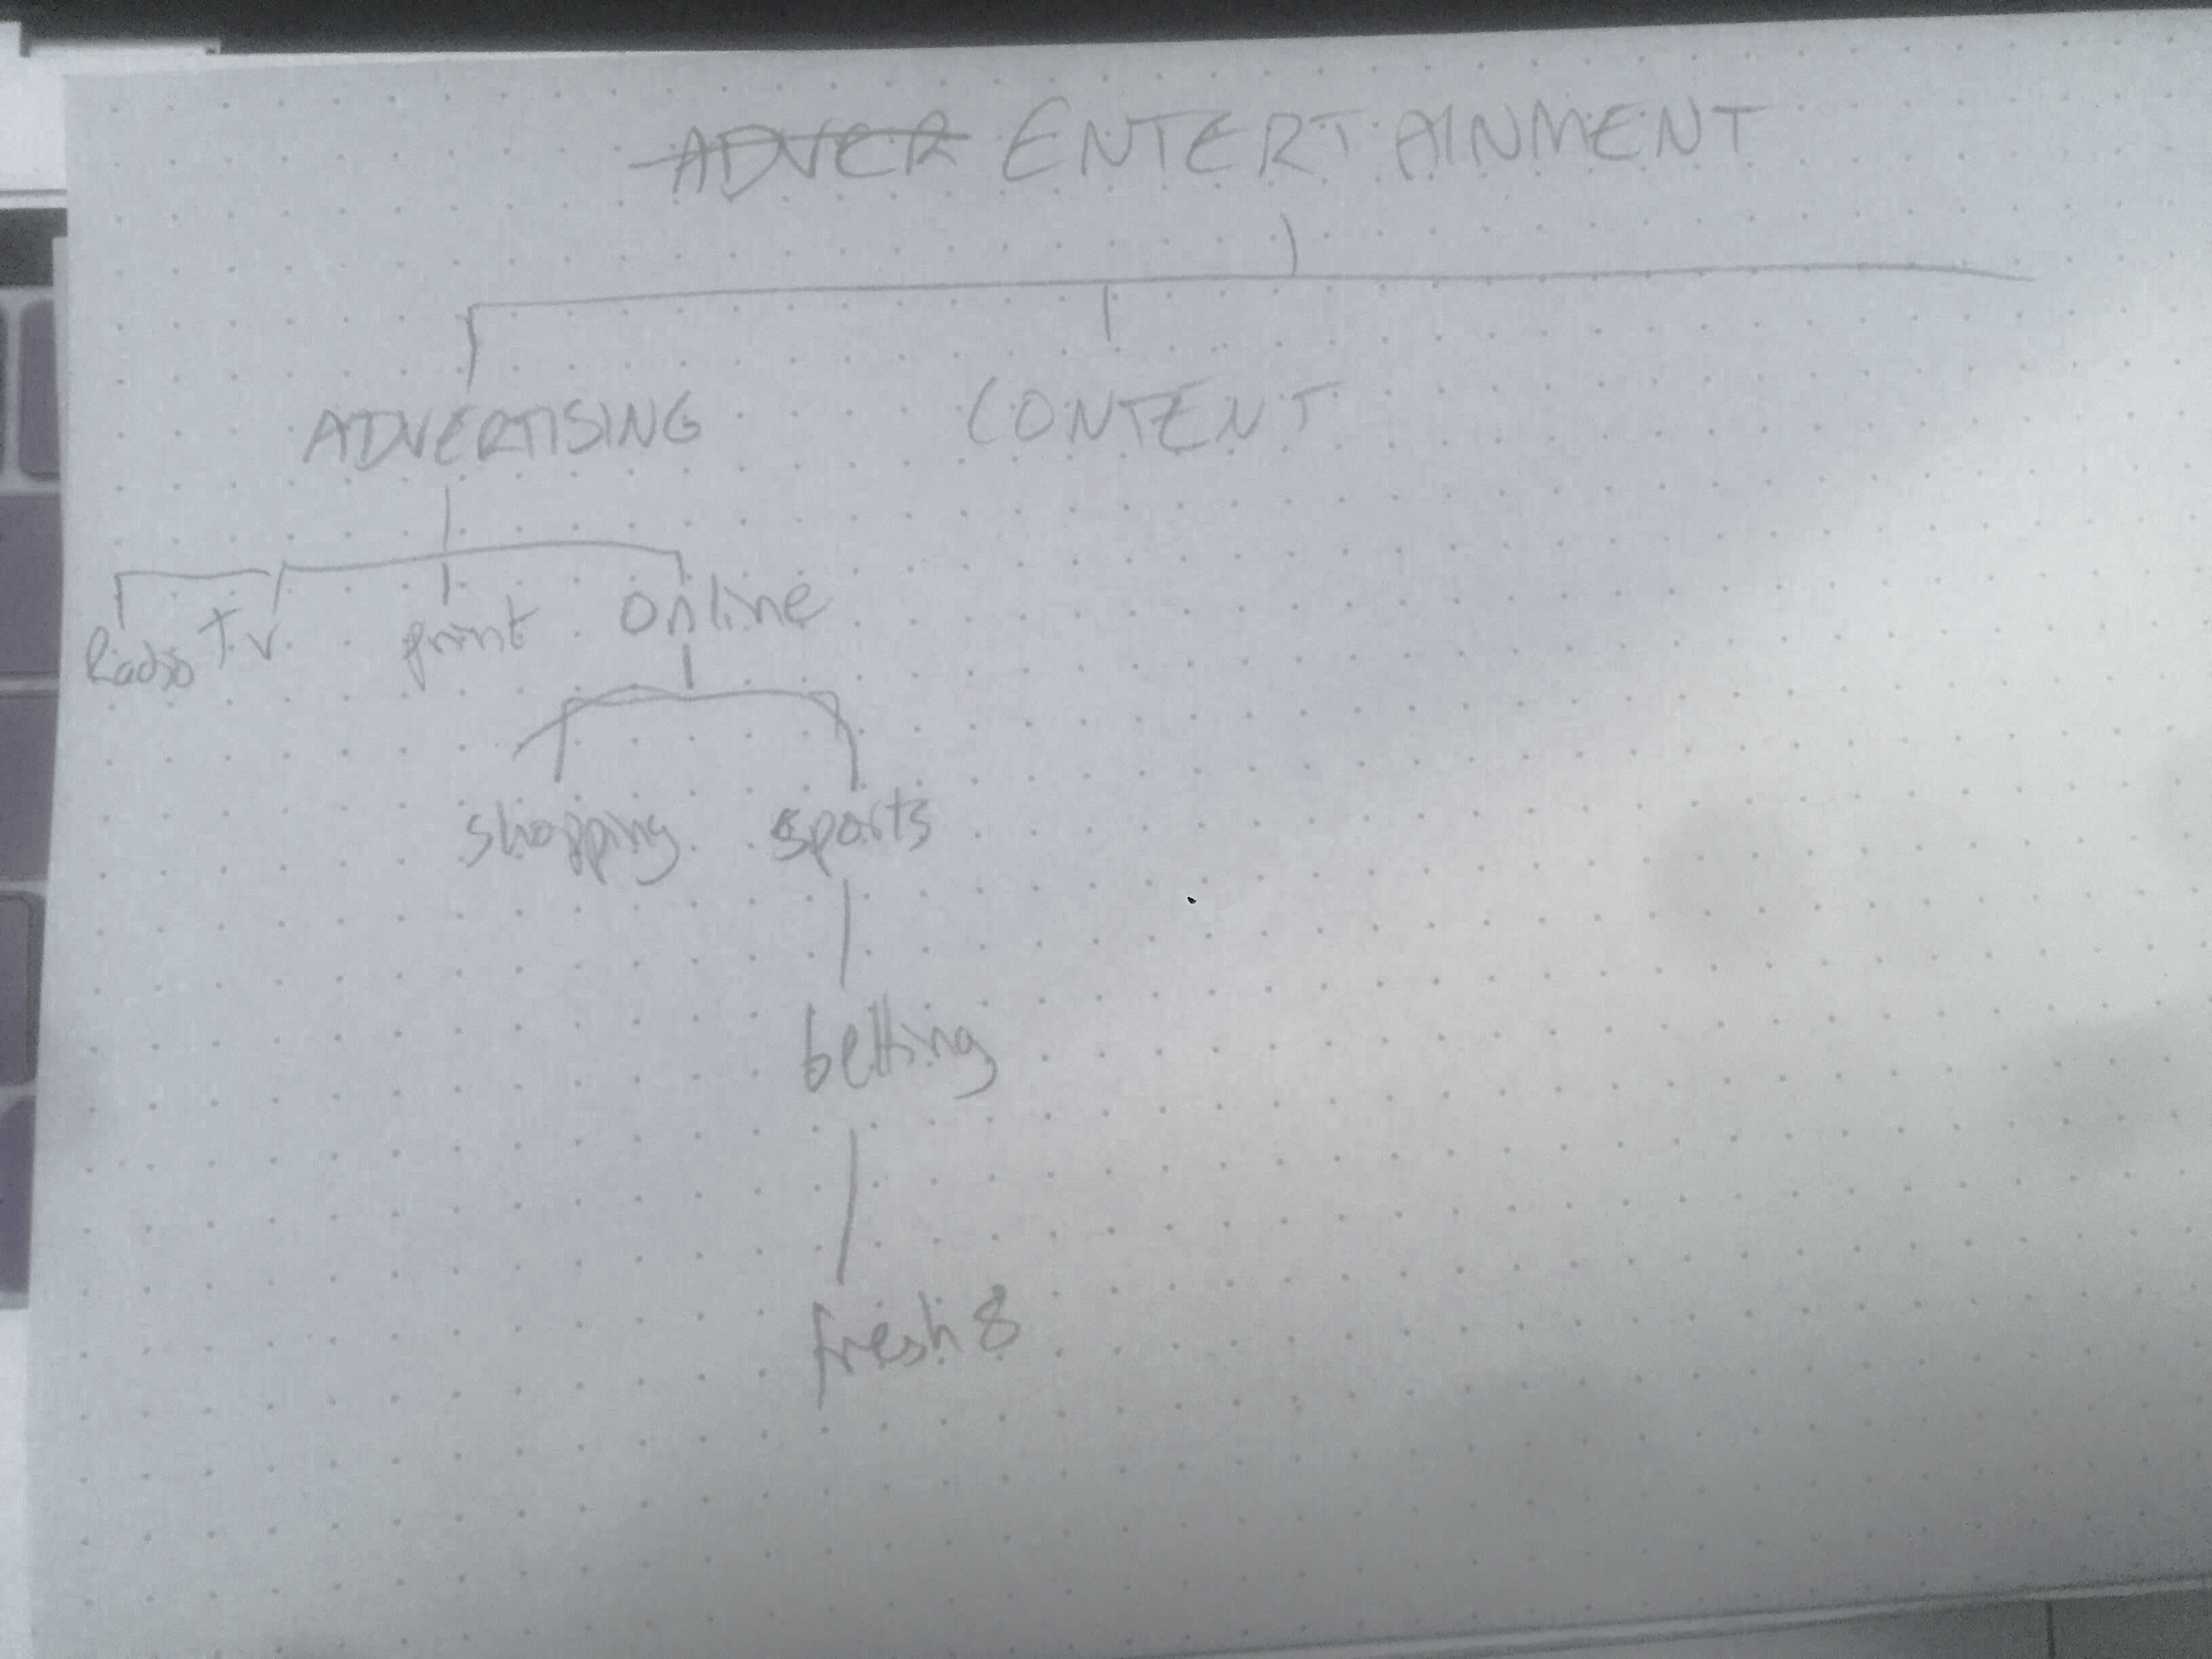 ADVER ENTERTAINMENT
ADVERTISING CONTENT
Radio TV print Online
shopping sports
betting
fresh 8